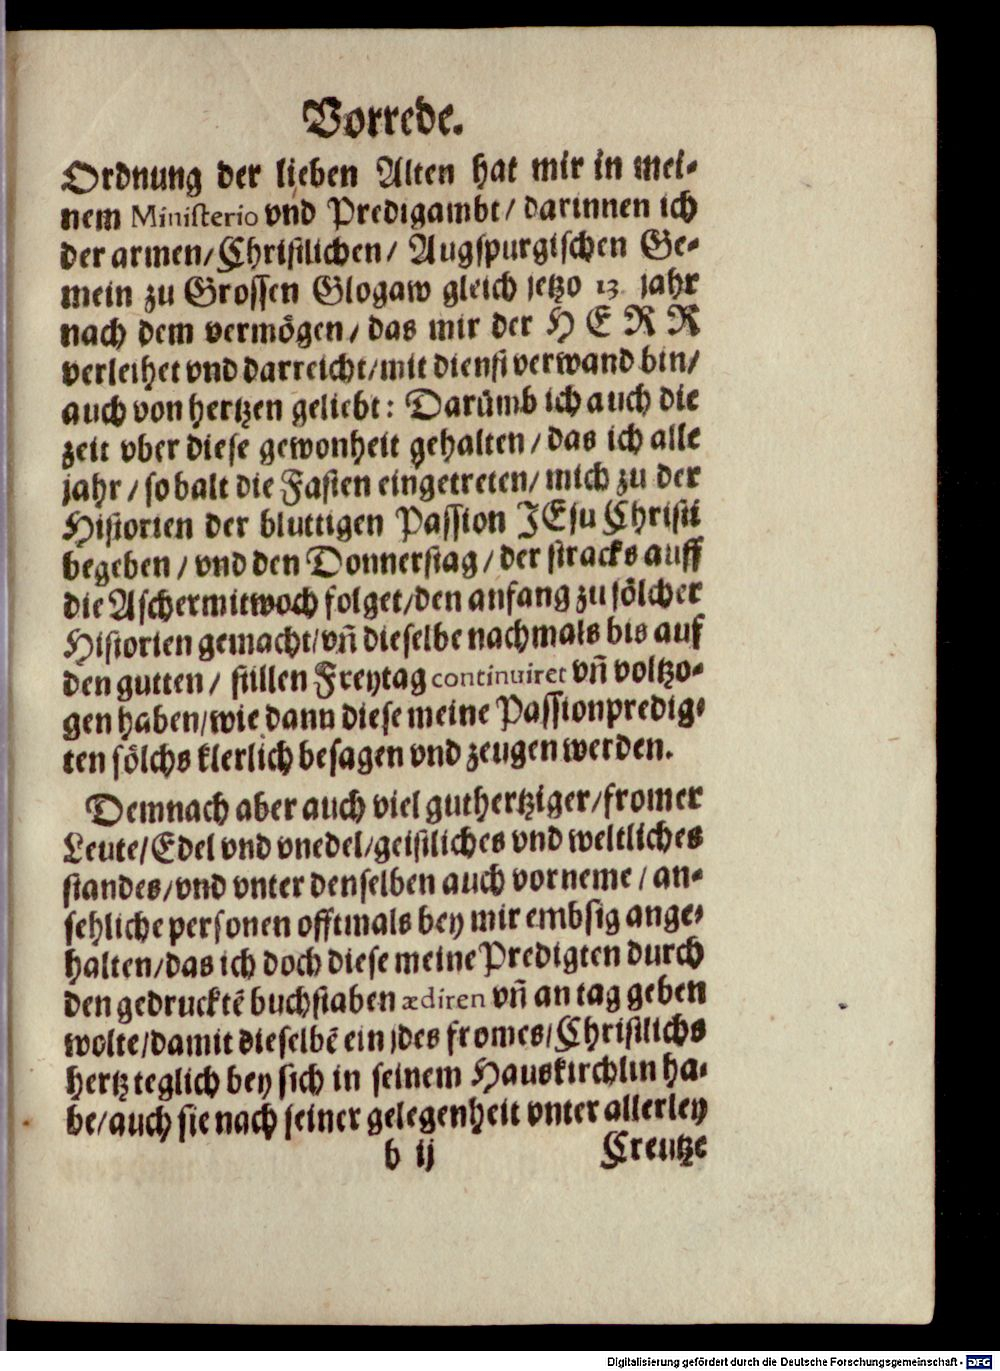 Vorrede.
Ordnung der lieben Alten hat mir in mei-
nem Ministerio vnd Predigambt/ darinnen ich
der armen/ Christlichen/ Augspurgischen Ge-
mein zu Grossen Glogaw gleich jetzo 13. jahr
nach dem vermögen/ das mir der HERR
verleihet vnd darreicht/ mit dienst verwand bin/
auch von hertzen geliebt: Darümb ich auch die
zeit vber diese gewonheit gehalten/ das ich alle
jahr/ so balt die Fasten eingetreten/ mich zu der
Historien der bluttigen Passion JEsu Christi
begeben/ vnd den Donnerstag/ der stracks auff
die Aschermitwoch folget/ den anfang zu sölcher
Historien gemacht/ vñ dieselbe nachmals bis auf
den gutten/ stillen Freytag continuiret vñ voltzo-
gen haben/ wie dann diese meine Passionpredig-
ten sölchs klerlich besagen vnd zeugen werden.
Demnach aber auch viel guthertziger/ fromer
Leute/ Edel vnd vnedel/ geistliches vnd weltliches
standes/ vnd vnter denselben auch vorneme/ an-
sehliche personen offtmals bey mir embsig ange-
halten/ das ich doch diese meine Predigten durch
den gedrucktē buchstaben ædiren vñ an tag geben
wolte/ damit dieselbē ein jdes fromes/ Christlichs
hertz teglich bey sich in seinem Hauskirchlin ha-
be/ auch sie nach seiner gelegenheit vnter allerley
b ij Creutze
Digitalisierung gefördert durch die Deutsche Forschungsgemeinschaft - DFG